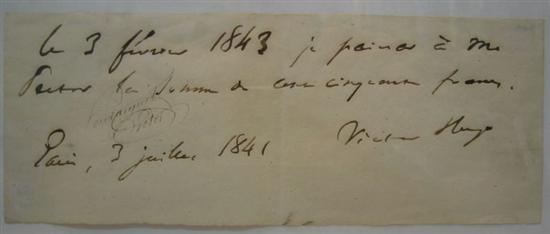 le 3 février 1843 je paierai à Mr
la somme de cent cinquante francs.
Paris, 3 juillet 1841 Victor Hugo